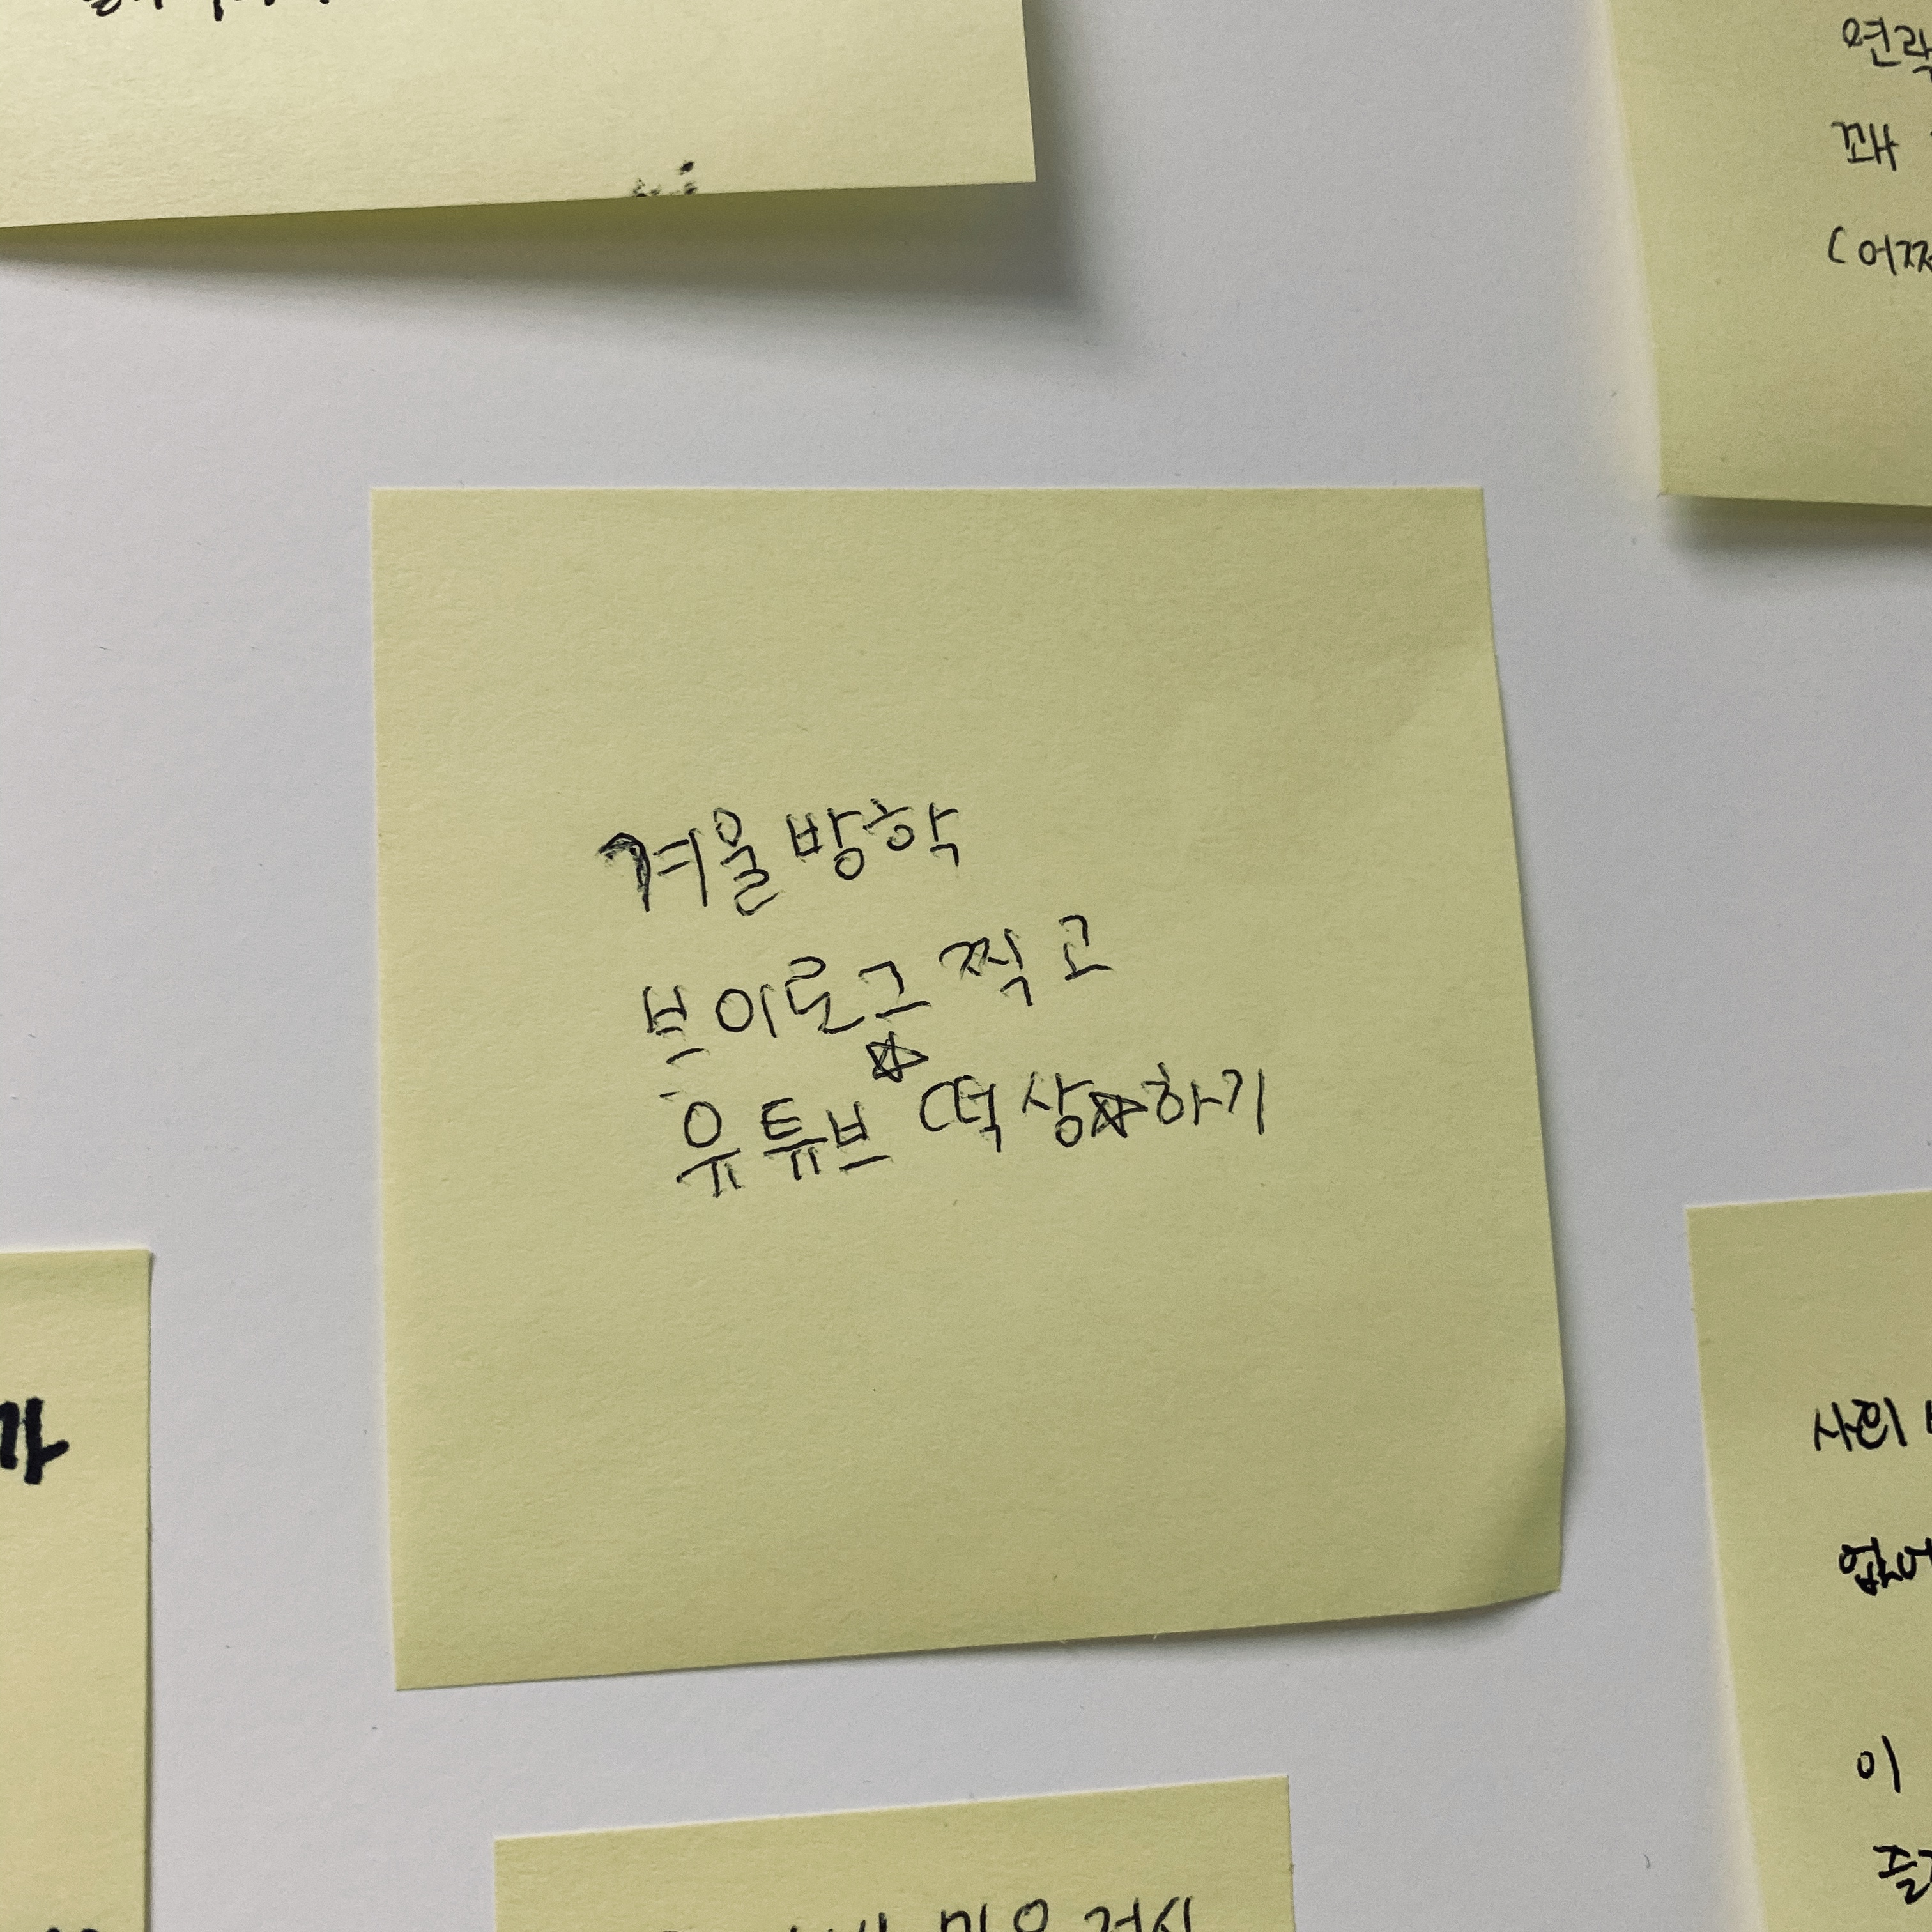 연락
꽤
(어쩌
겨울방학
브이로그 찍고
유튜브 ☆떡상☆하기
사회
없어
이
즐